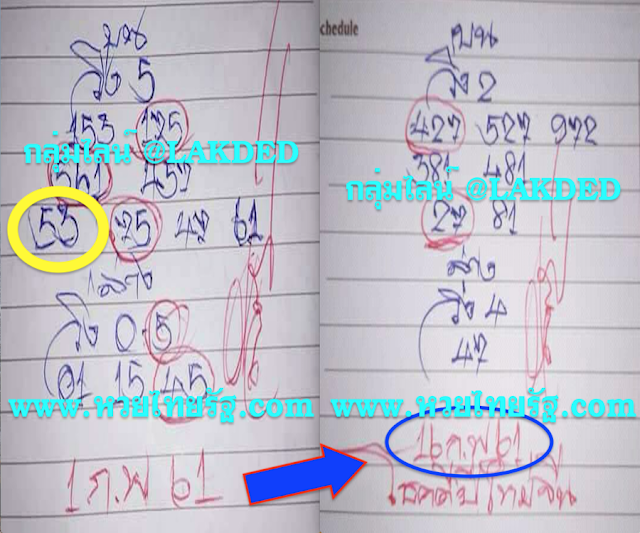 บน
วิ่ง 5
153 125
กลุ่มไลน์ @LAKDED
551 457
53 25 47 61
ล่าง
วิ่ง 0-5
01 15 45
www.หวยไทยรัฐ.com
1 ก.พ 61
chedule
บน
วิ่ง 2
427 527 972
381 481
กลุ่มไลน์ @LAKDED
27 81
ล่าง
วิ่ง 4
47
www.หวยไทยรัฐ.com
16 ก.พ 61
โชคดีปีใหม่จีน